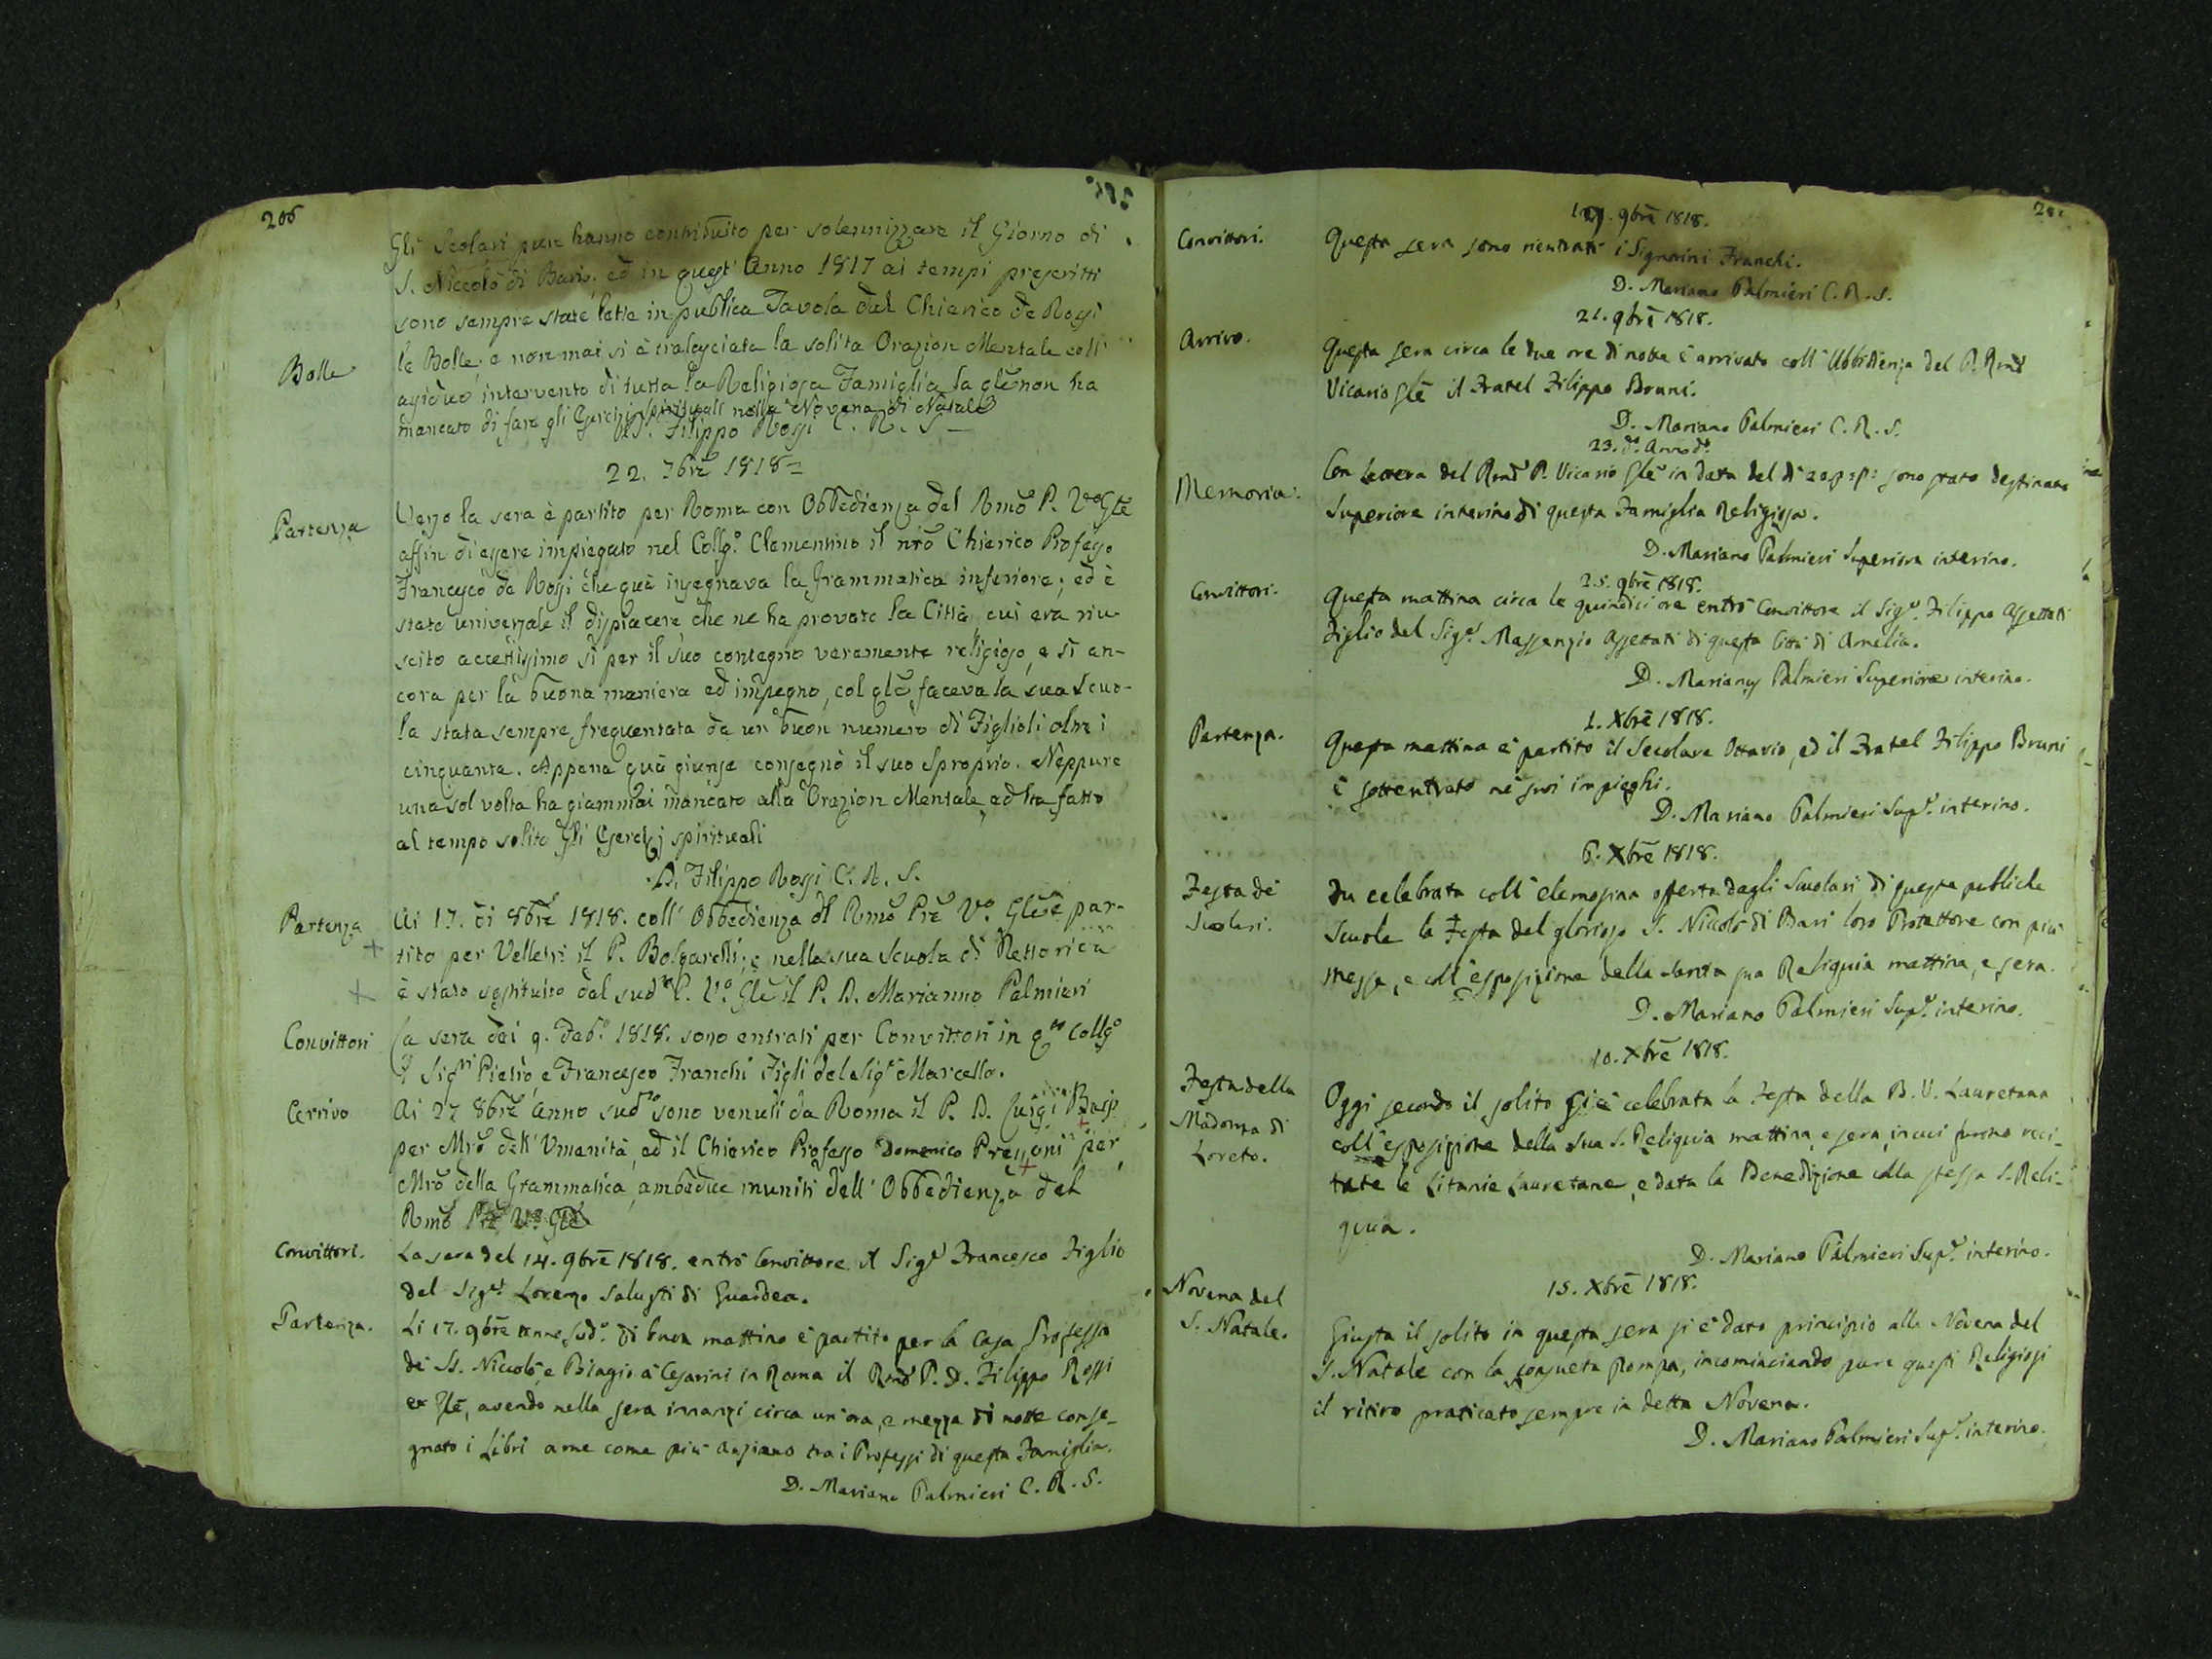 206
Gli Scolari pure hanno contribuito per solennizzare il Giorno di
S. Niccolò di Bari; ed in quest' Anno 1817 ai tempi prescritti
sono sempre state lette in publica Tavola dal Chierico De Rossi
Bolle
le Bolle; e non mai si è tralasciata la solita Orazion Mentale coll'
assiduo intervento di tutta la Religiosa Famiglia la qle non ha
mancato di fare gli Esercizj spirituali nella Novena di Natale
D. Filippo Rossi C. R. S.
22. 7bre 1818
Partenza
Verso la sera è partito per Roma con Obbedienza del Rmo P. Vo Gle
affin di essere impiegato nel Collgo Clementino il nro Chierico Professo
Francesco de Rossi che quà insegnava la Grammatica inferiore; ed è
stato universale il dispiacere che ne ha provato la Città, cui era riu-
scito accettissimo sì per il suo contegno veramente religioso, e sì an-
cora per la buona maniera ed impegno, col qle faceva la sua Scuo-
la stata sempre frequentata da un buon numero di Figlioli oltre i
cinquanta. Appena quà giunse consegnò il suo Sproprio. Neppure
una sol volta ha giammai mancato alla Orazion Mentale, ed ha fatto
al tempo solito gli Esercizj spirituali
D. Filippo Rossi C. R. S.
Partenza
Ai 17. di 8bre 1818. coll' Obbedienza dl Rmo Pre Vo. Gle è par-
tito per Velletri il P. Bolgarelli; e nella sua Scuola di Rettorica
è stato sostituito dal sudo P. Vo. Gle il P. D. Marianno Palmieri
Convittori
La sera dei 9. Debo. 1818. sono entrati per Convittori in qto Collgo
i Sigri Pietro, e Francesco Franchi Figli del Sigr Marcello.
Arrivo
Ai 27 8bre Anno sudo sono venuti da Roma il P. D. Luigi
per Mro dell' Umanità, ed il Chierico Professo Domenico per
Mro della Grammatica, ambedue muniti dell' Obbedienza del
Rmo Pre Vo Gle
Convittori.
La sera del 14. 9bre 1818. entrò Convittore il Sigr Francesco Figlio
del Sigr. Lorenzo Salusti di Guardea.
Partenza.
Li 17. 9bre anno sudo. di buon mattino è partito per la Casa Professa
de' SS. Niccolò, e Biagio a' Cesarini in Roma il Rmo P. D. Filippo Rossi
ex Gle, avendo nella sera innanzi circa un'ora, e mezza di notte conse-
gnato i Libri a me come più anziano tra i Professi di questa Famiglia.
D. Mariano Palmieri C. R. S.
19. 9bre 1818.
Convittori.
Questa sera sono rientrati i Signorini Franchi.
D. Mariano Palmieri C. R. S.
21. 9bre 1818.
Arrivo.
Questa sera circa le due ore di notte è arrivato coll' Ubbidienza del P. Rmo
Vicario Gle il Fratel Filippo Bruni.
D. Mariano Palmieri C. R. S.
23. do. Anno do.
Memoria.
Con lettera del Rmo P. Vicario Gle in data del dì 20 sono stato destinato
Superiore interino di questa Famiglia Religiosa.
D. Mariano Palmieri Superiore interino.
25. 9bre 1818.
Convittori.
Questa mattina circa le quindici ore entrò Convittore il Sigr. Filippo Assettati
Figlio del Sigr. Massenzio Assettati di questa Città di Amelia.
D. Mariano Palmieri Superiore interino.
1. Xbre 1818.
Partenza.
Questa mattina è partito il Secolare Ottavio, ed il Fratel Filippo Bruni
è sottentrato ne' suoi impieghi.
D. Mariano Palmieri Supr. interino.
6. Xbre 1818.
Festa de'
Scolari.
Fu celebrata coll' elemosina offerta dagli Scuolari di queste publiche
Scuole la Festa del glorioso S. Niccolò di Bari loro Protettore con più
messe, e coll' esposizione della santa sua Reliquia mattina, e sera.
D. Mariano Palmieri Supr. interino.
10. Xbre 1818.
Festa della
Madonna di
Loreto.
Oggi secondo il solito si è celebrata la Festa della B. V. Lauretana
coll' esposizione della sua S. Reliquia mattina, e sera, in cui furono reci-
tate le Litanie Lauretane, e data la Benedizione colla stessa S. Reli-
quia.
D. Mariano Palmieri Supr. interino.
15. Xbre 1818.
Novena del
S. Natale.
Giusta il solito in questa sera si è dato principio alla Novena del
S. Natale con la consueta Pompa, incominciando pure questi Religiosi
il ritiro praticato sempre in detta Novena.
D. Mariano Palmieri Supr. interino.